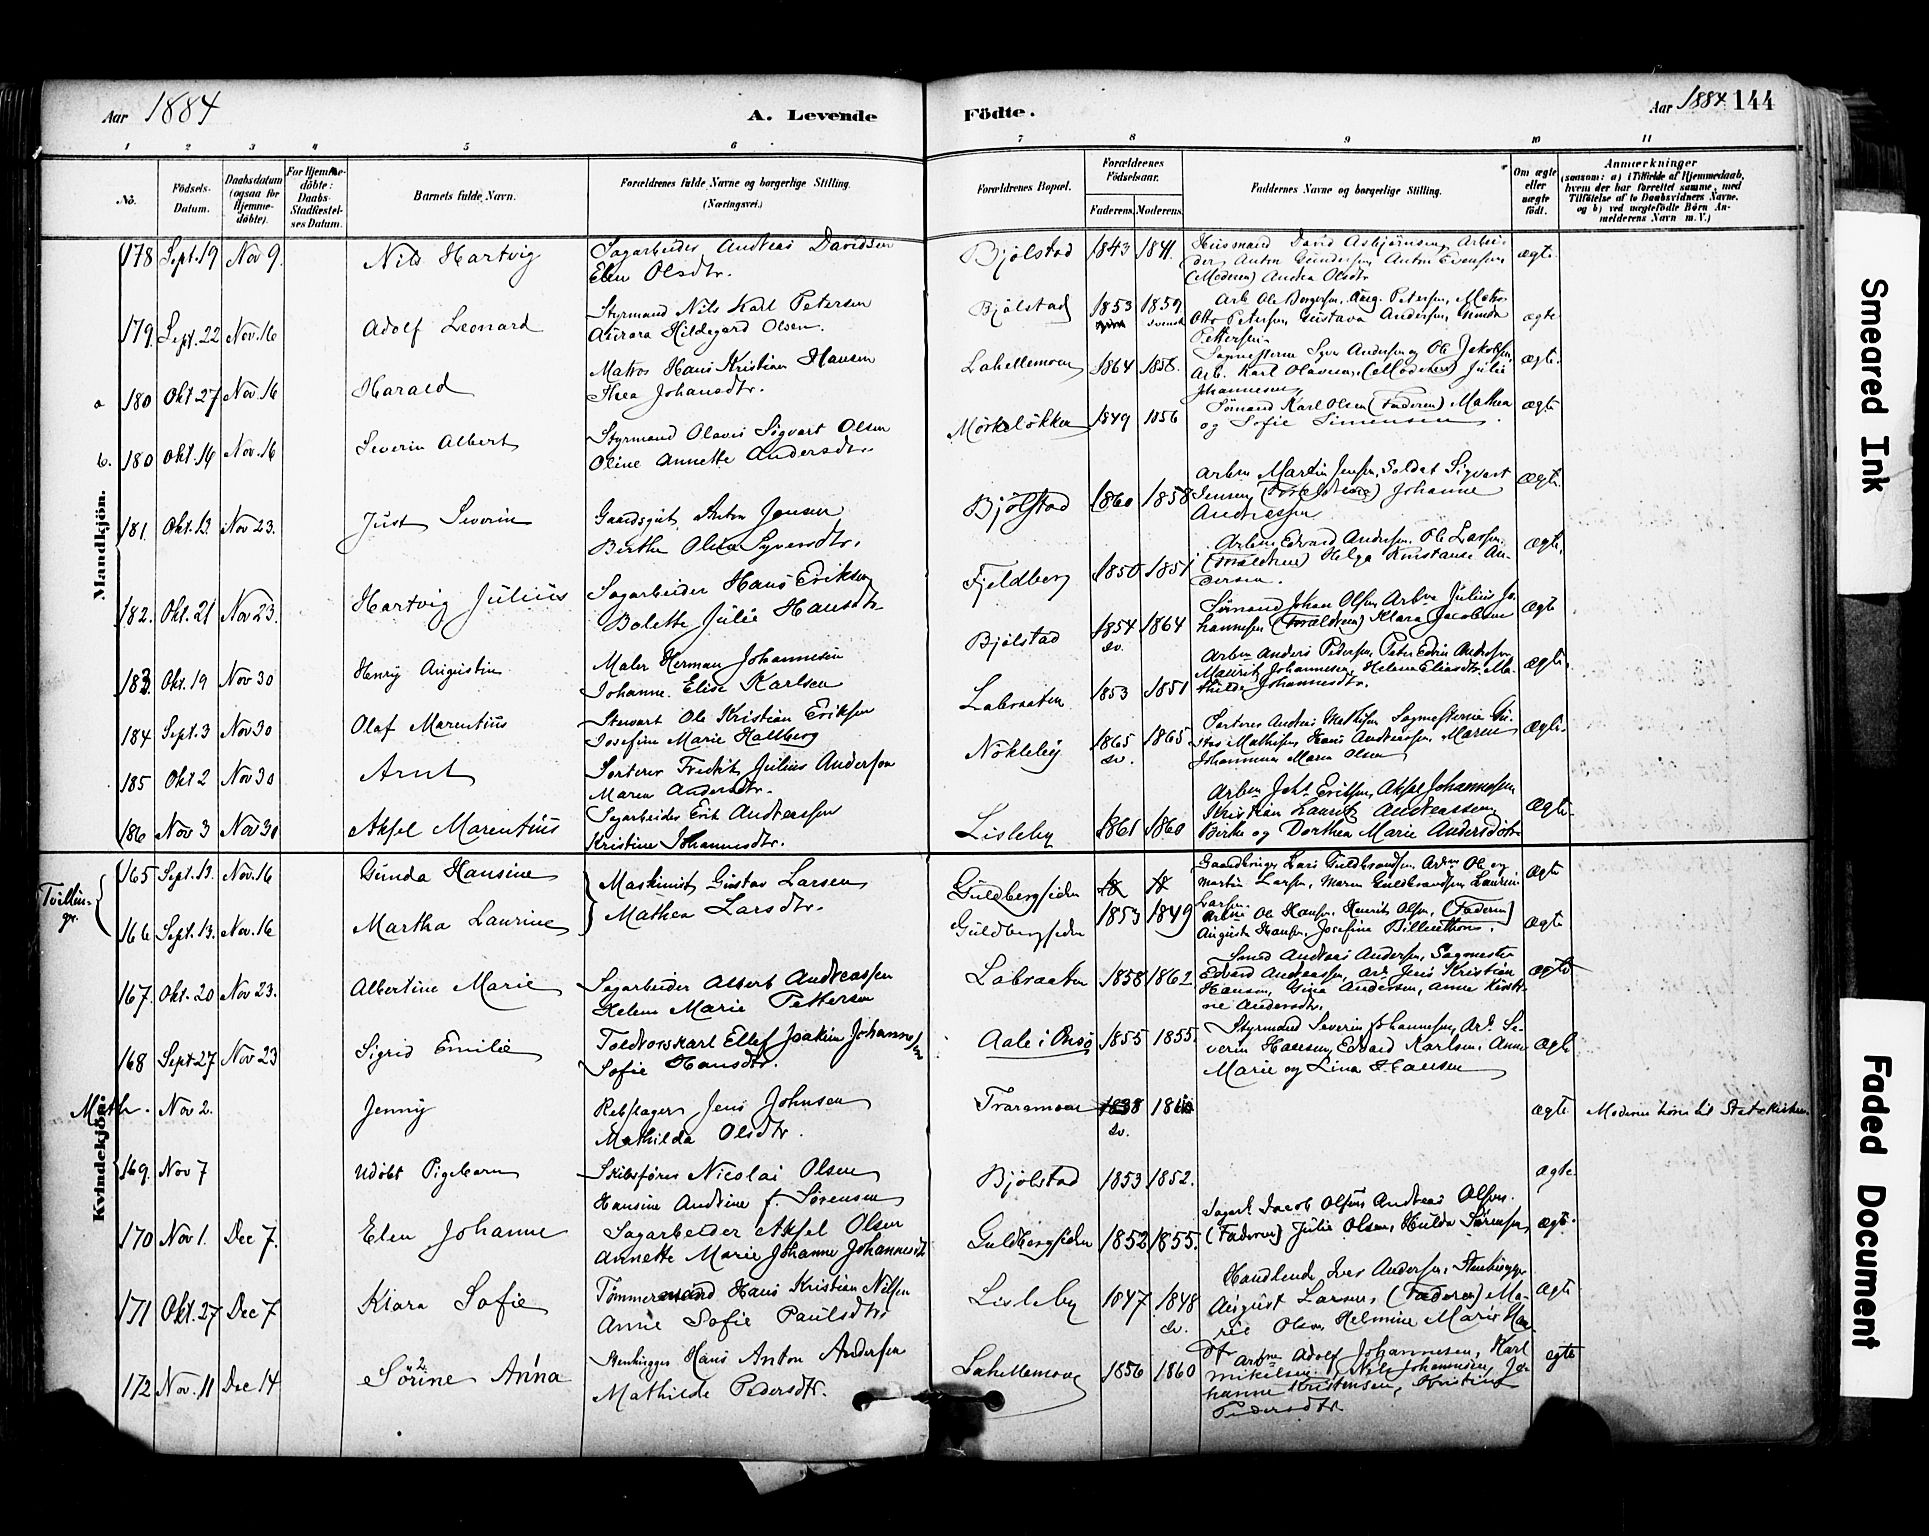 Aar 1884
A. Levende
Födte.
Aar 1884 144
1 2 3 4 5 6 7 8 9 10 11
No.
Födsels-
Datum.
Daabsdatum
(ogsaa for
Hjemme-
döbte).
For Hjemme-
döbte:
Daabs-
Stadfæstel-
ses Datum.
Barnets fulde Navn.
Forældrenes fulde Navne og borgerlige Stilling.
(Næringsvei.)
Forældrenes Bopæl.
Forældrenes
Födselsaar.
Faderens. Moderens.
Faddernes Navne og borgerlige Stilling.
Om ægte
eller
uægte
födt.
Anmærkninger
(saasom: a) i Tilfælde af Hjemmedaab,
hvem der har forrettet samme, med
Tilföielse af to Daabsvidners Navne,
og b) ved uægtefödte Börn An-
melderens Navn m. V.)
Mandkjön.
178 Sept. 19 Nov 9. Nils Hartvig
Sagarbeider Andreas Davidsen
Elen Olsdtr.
Bjölstad 1843 1841.
Husmand David Asbjörnsen, Arbei-
der Anton Gundersen, Anton Evensen
(Moderen) Andrea Olsdtr
ægte.
179. Sept. 22 Nov. 16 Adolf Leonard
Styrmand Nils Karl Petersen
Aurora Hildegard Olsen.
Bjölstad 1853 1859 svensk
Arb. Ole Borgersen, Aug. Petersen, Matros
Otto Petersen, Gustava Andersen, Gunda
Pettersen.
ægte
a 180 Okt 27 Nov. 16 Harald
Matros Hans Kristian Hansen
Thea Johansdtr.
Lahellemoen 1864 1858.
Sagmesterne Syver Andersen og Ole Jakobsen,
Arb. Karl Olavesen, (Moderen) Julie
Johannesen
ægte.
b. 180 Okt. 14 Nov. 16 Severin Albert
Styrmand Olavus Sigvart Olsen
Oline Annette Andersdtr.
Mörkelökken 1849 1856
Sömand Karl Olsen (Faderen) Mathea
og Sofie Simensen.
ægte
181. Okt. 13. Nov 23. Just Severin
Gaardsgut Anton Jensen
Berthe Olea Syversdtr.
Bjölstad 1860 1858
Arbm Martin Jensen, Soldat Sigvart
Jensen (Forældrene) Johanne
Andreassen
ægte.
182. Okt. 21 Nov 23. Hartvig Julius
Sagarbeider Hans Eriksen
Bolette Julie Hansdtr
Fjeldberg 1850 1851
Arbme Edvard Andersen, Ole Larsen,
(Forældrene) Helga Konstanse An-
dersen.
ægte.
183. Okt. 19 Nov 30 Henry Augustin
Maler Herman Johannesen
Johanne Elise Karlsen
Bjölstad 1854 sv. 1864
Sömand Johan Olsen, Arbm Julius Jo-
hannesen (Forældrene) Klara Jacobsen
ægte
184 Sept. 3 Nov 30 Olaf Marentius
Stuvart Ole Kristian Eriksen
Josefine Marie Hallberg
Labraaten 1853 1851
Arbm Anders Pedersen, Peter Edvin Andersen,
Mauritz Johannesen, Helene Eliasdtr, Ma-
thilde Johannesdtr.
ægte.
185 Okt 2 Nov 30 Arnt
Sorterer Fredrik Julius Andersen
Maren Andersdtr.
Nökleby 1865 sv. 1865.
Sorterer Andreas Mathisen, Sagmesterne Gu-
stav Mathisen, Hans Andreassen, Maren
Johannesen, Maren Olsen
ægte.
186 Nov 3 Nov 30 Aksel Marentius
Sagarbeider Erik Andreassen
Kristine Johannesdtr.
Lisleby 1861 1860
Arbm Joh. Eriksen, Aksel Johannessen
Kristian Lauritz Andreassen
Birthe og Dorthea Marie Andersdötr
ægte.
Kvindekjön.
Tvillin-
gr.
165 Sept. 13. Nov. 16 Gunda Hansine
166 Sept. 13. Nov. 16 Martha Laurine
Maskinist Gustav Larsen
Mathea Larsdtr.
Guldbergsiden
Guldbergsiden 1853 1849
Gaardbruger Lars Guldbrandsen, Arbm Ole og
Martin Larsen, Maren Guldbrandsen, Laurine
Larsen.
ægte
Arbme Ole Hansen, Henrik Olsen, (Faderen)
Augusta Hansen, Josefine
ægte
167. Okt. 20 Nov 23. Albertine Marie
Sagarbeider Albert Andreassen
Helene Marie Pettersen
Labraaten 1858 1862
Smed Andreas Andersen, Sagmester
Edvard Andreassen, arb. Jens Kristian
Hansen, Gina Andersen, Anne Kirsti-
ne Andersdtr.
ægte
168 Sept 27 Nov 23 Sigrid Emilie
Toldvorskarl Ellef Joakim Johannesen
Sofie Hansdtr.
Aale i Onsö 1855 1855.
Styrmand Severin Johannesen, Arb. Se-
verin Hansen, Edvard Karlsen, Anne
Marie og Lina Hansen
ægte
Meth. Nov 2. Jenny
Rebslager Jens Johnsen
Mathilda Olsdtr.
Traramoen 1838 sv.
ægte Moderen hörer til Statskirken
169. Nov 7 Udöbt Pigebarn
Skibsförer Nicolai Olsen
Hansine Andrine f. Sörensen
Bjölstad 1853 1852.
ægte
170 Nov 1. Dec 7. Elen Johanne
Sagarbeider Aksel Olsen
Annette Marie Johanne Johannesdtr
Guldbergsiden 1852 1855.
Sagarb. Jacob Olsen, Andreas Olsen,
(Faderen) Julie Olsen, Hulda Sörensen,
ægt.
171 Okt. 27 Dec 7. Klara Sofie
Tömmermand Hans Kristian Nilsen
Anne Sofie Paulsdtr
Lisleby 1847 1848 sv.
Handlende Iver Andersen, Stenhugger
August Larsen, (Faderen) Ma-
rie Olsen, Helmine Marie Han-
ægte
172 Nov. 11 Dec 14 Sörine Anna
Stenhugger Hans Anton Andersen
Mathilde Pedersdtr.
Lahellemoen 1856 1860
Arbme Adolf Johannesen, Karl
Mikelsen, Nils Johannesen, Jo-
hanne Kristensen, Kristine
Pedersdtr.
ægte
Smeared Ink
Faded Document